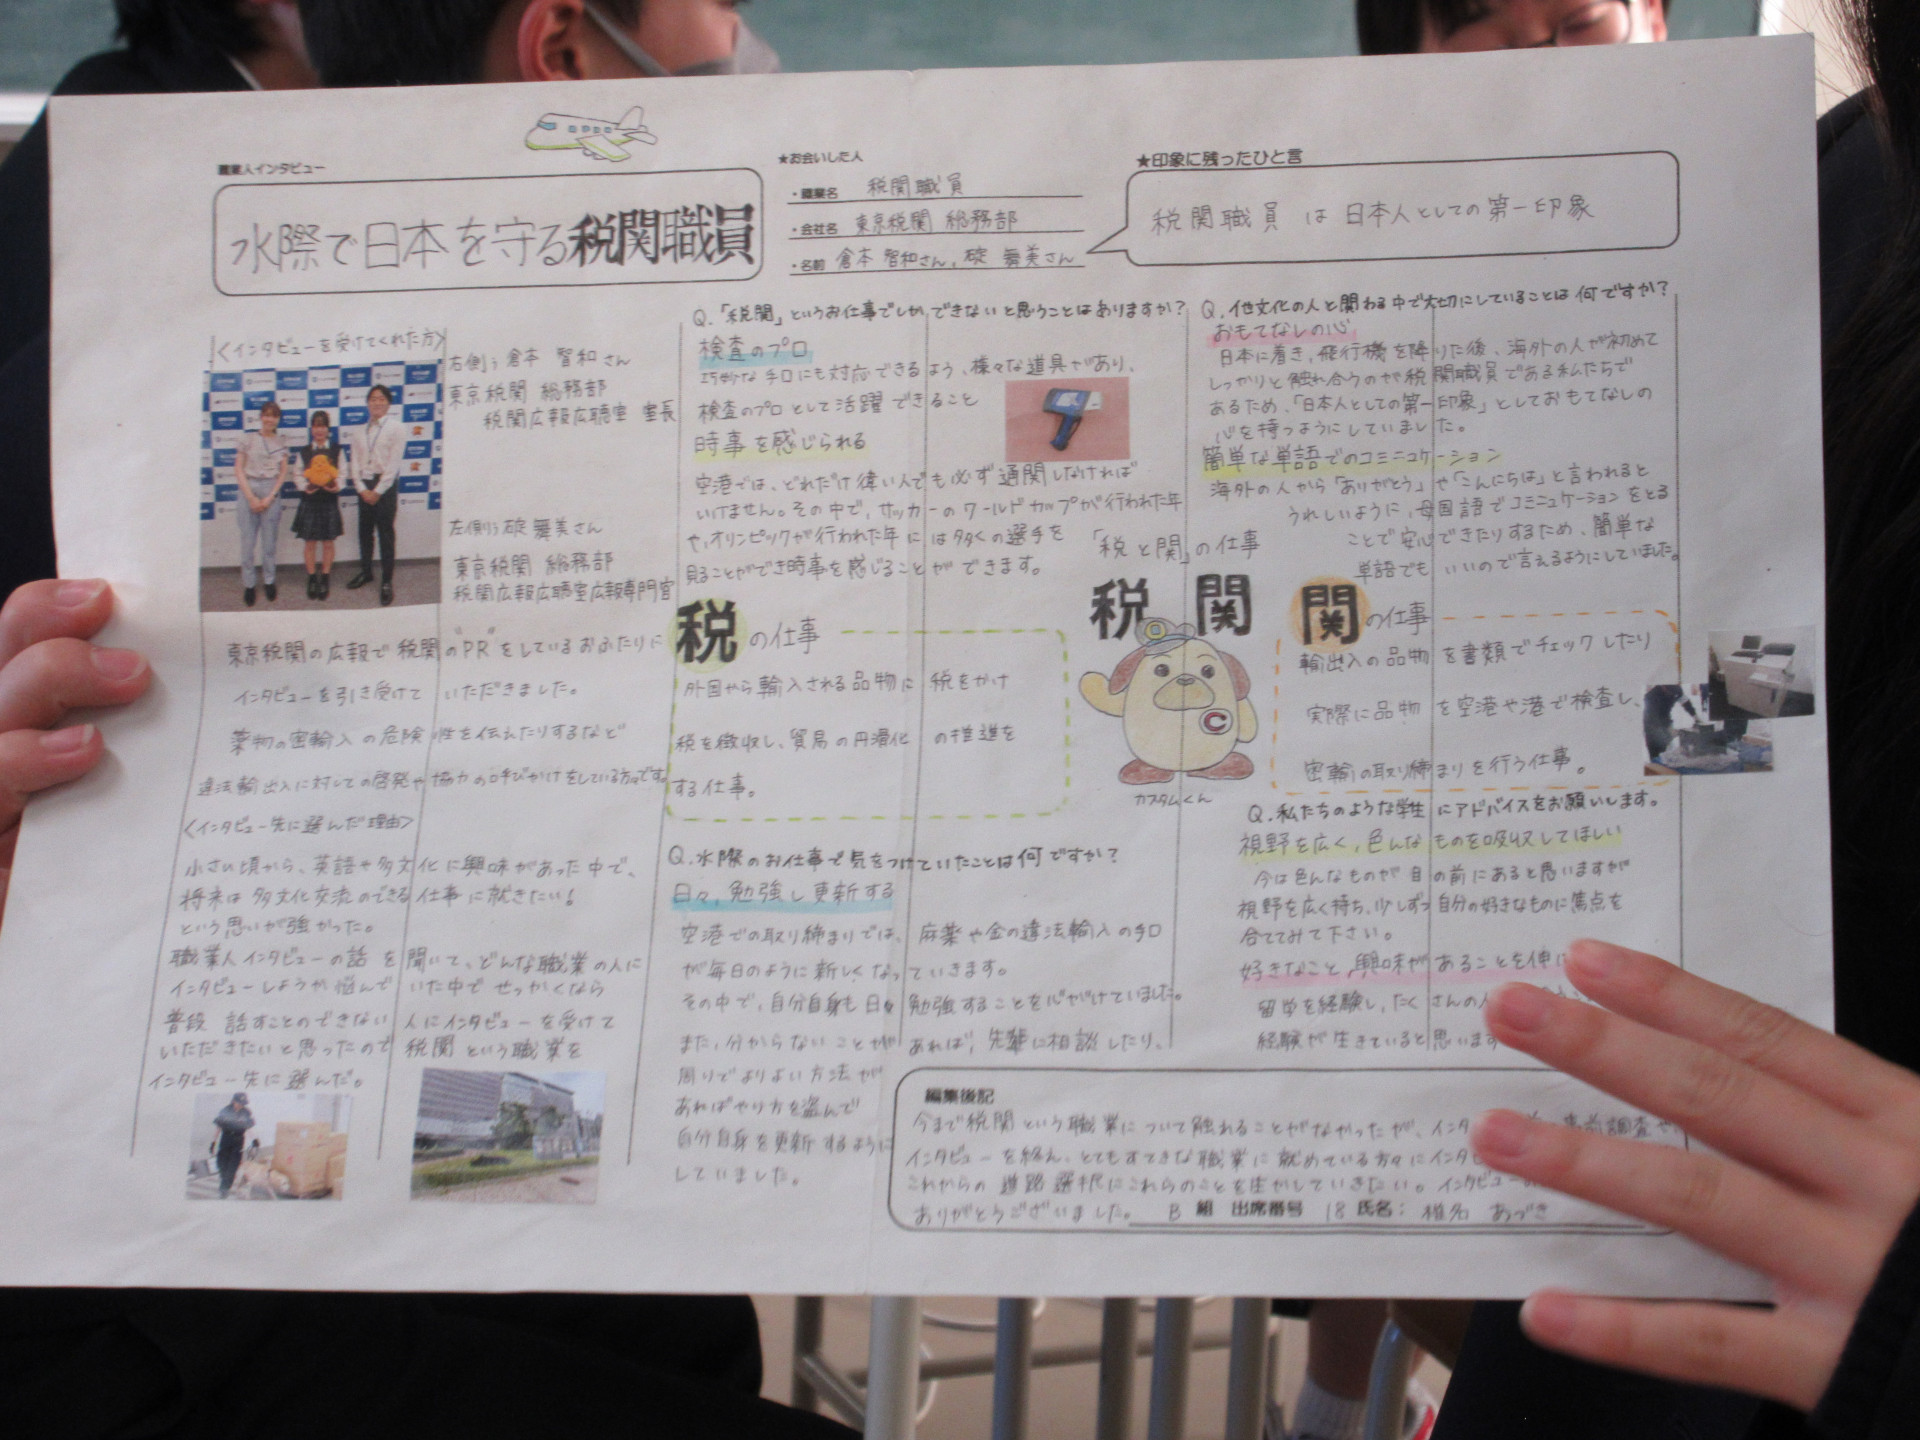 職業人インタビュー
水際で日本を守る税関職員
★お会いした人
・職業名 税関職員
・会社名 東京税関 総務部
・名前 倉本 智和さん、碇 舞美さん
★印象に残ったひと言
税関職員 は 日本人としての第一印象
<インタビューを受けてくれた方>
右側 倉本 智和さん
東京税関 総務部
税関広報広聴室 室長
左側 碇 舞美さん
東京税関 総務部
税関広報広聴室広報専門官
東京税関の広報で税関の"PR"をしているおふたりに
インタビューを引き受けて いただきました。
薬物の密輸入の危険性を伝えたりするなど
違法輸出入に対しての啓発や協力の呼びかけをしている方々です。
<インタビュー先に選んだ理由>
小さい頃から、英語や多文化に興味があった中で、
将来は多文化交流のできる仕事に就きたい!
という思いが強かった。
職業人インタビューの話を聞いて、どんな職業の人に
インタビューしようか悩んでいた中でせっかくなら
普段 話すことのできない人にインタビューを受けて
いただきたいと思ったので税関という職業を
インタビュー先に選んだ。
Q.「税関」というお仕事でしか、できないと思うことはありますか?
検査のプロ
巧妙な手口にも対応できるよう、様々な道具があり、
検査のプロとして活躍できること
時事を感じられる
空港では、どれだけ偉い人でも必ず通関しなければ
いけません。その中で、サッカーのワールドカップが行われた年
や、オリンピックが行われた年には多くの選手を
見ることができ時事を感じることができます。
税の仕事
外国から輸入される品物に税をかけ
税を徴収し、貿易の円滑化の推進を
する仕事。
「税と関」の仕事
税 関
C
カスタムくん
関の仕事
輸出入の品物を書類でチェックしたり
実際に品物を空港や港で検査し、
密輸の取り締まりを行う仕事。
Q.水際のお仕事で気をつけていたことは何ですか?
日々、勉強し更新する
空港での取り締まりでは、麻薬や金の違法輸入の手口
が毎日のように新しくなっていきます。
その中で、自分自身も日々勉強することを心がけていました。
また、分からないことがあれば、先輩に相談したり、
周りでよりよい方法が
あればやり方を盗んで
自分自身を更新するように
していました。
Q.他文化の人と関わる中で大切にしていることは何ですか?
おもてなしの心
日本に着き、飛行機を降りた後、海外の人が初めて
しっかりと触れ合うのが税関職員である私たちで
あるため、「日本人としての第一印象」としておもてなしの
心を持つようにしていました。
簡単な単語でのコミニュケーション
海外の人から「ありがとう」や「こんにちは」と言われると
うれしいように、母国語でコミニュケーションをとる
ことで安心できたりするため、簡単な
単語でもいいので言えるようにしていました。
Q.私たちのような学生にアドバイスをお願いします。
視野を広く、色んなものを吸収してほしい
今は色んなものが目の前にあると思いますが
視野を広く持ち、少しずつ自分の好きなものに焦点を
合ててみて下さい。
好きなこと、興味があることを伸
留学を経験し、たくさんの人
経験が生きていると思います
編集後記
今まで税関という職業について触れることがなかったが、インタ 事前調査や
インタビューを終え、とてもすてきな職業に就めている方々にインタビ
これからの進路選択にこれらのことを生かしていきたい。インタビュー
ありがとうございました。 B 組 出席番号 18 氏名: 椎名 あづき